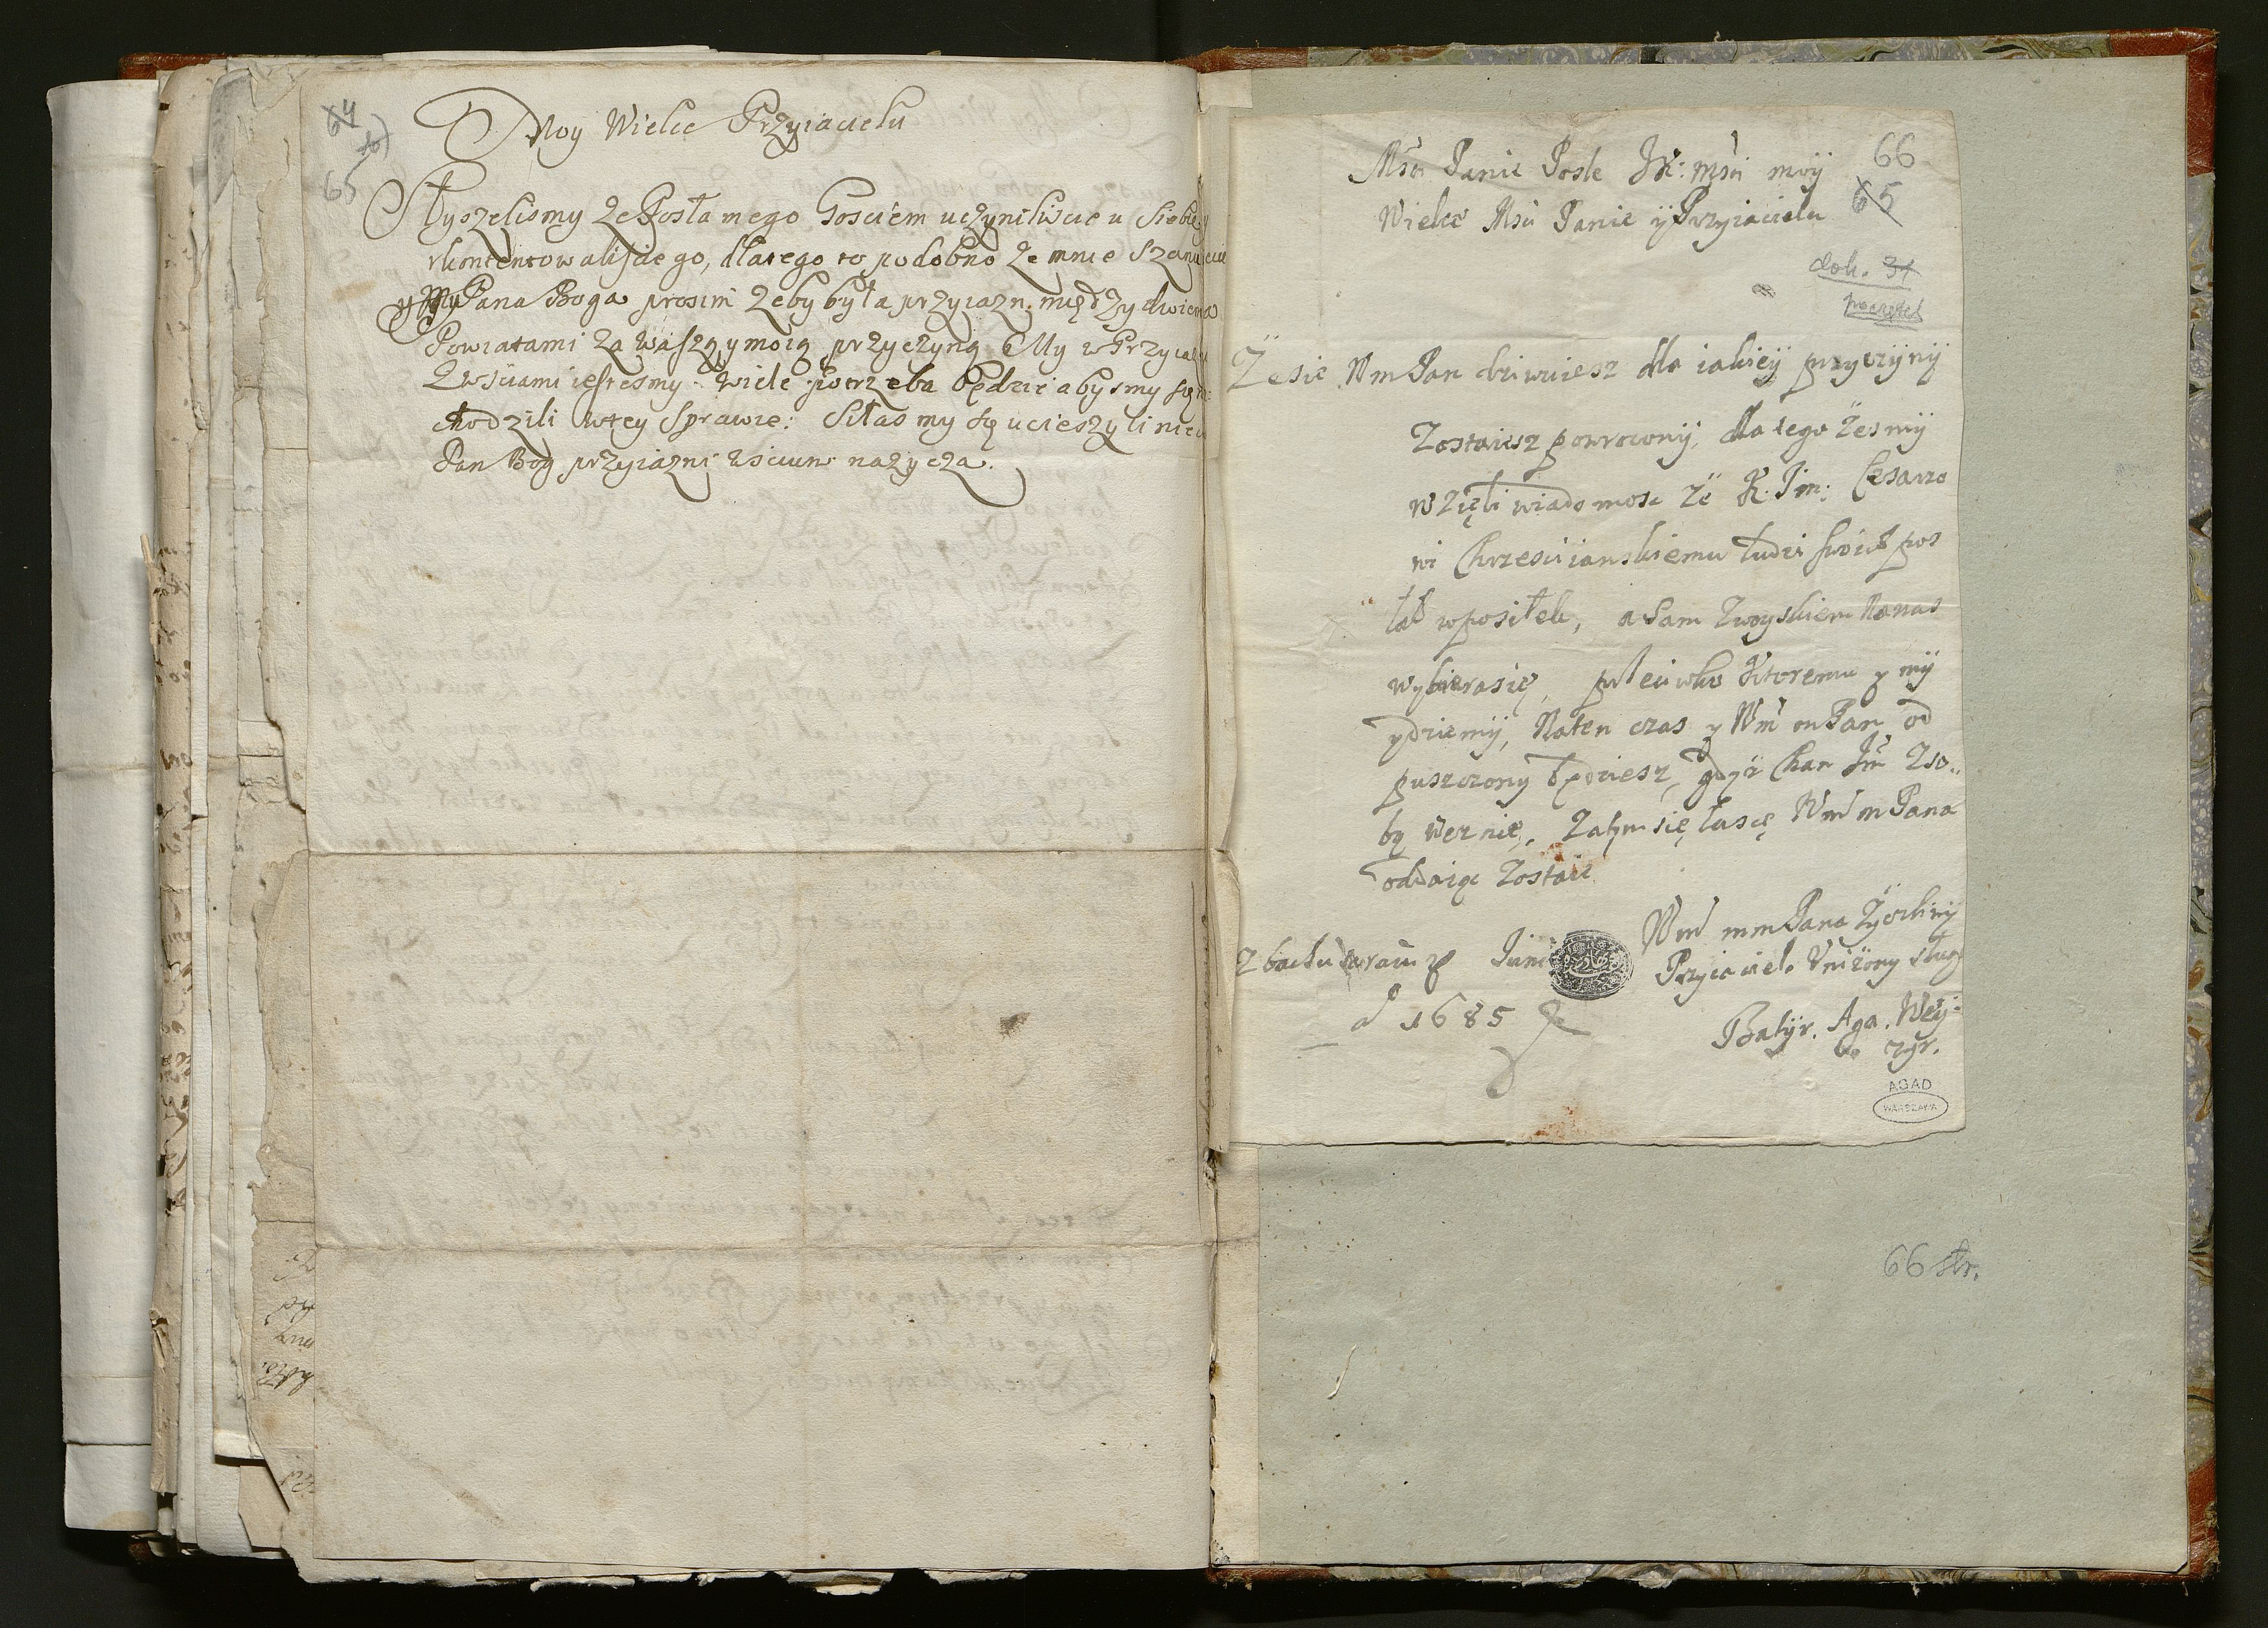 64
65
Moy Wielce Przyiacielu
Słyszelismy że Posła mego Gosciem uczyniliscie u Siebie y
vkontentowaliscie go, dlatego to podobno że mnie Szanuiecie
y My Pana Boga prosim żeby była przyiazn. między dwiema
Powiatami za waszą y moią przyczyną My w Przyiazni
Zwsciami iestesmy. Wiele potrzeba będzie abysmy się
chodzili wtey Sprawie: Siłasmy się ucieszyli
Pan Bog przyiazni wsciuni nażycza.
66
65
Msci Panie Posle JK: Msci moij
Wielce Msci Panie ij Przyiacielu
dok. 31
początek
Żesie Wm Pan dziwuiesz dla iakieij przyczijnij
Zostaiesz powroconij, dla tego żesmij
wzięli wiadomosc że K. Jm: Cesarzo
wi Chrzescianskiemu ludzi swoich pos
łał wposiłek, a Sam Zwoyskiem Nanas
wybierasie, Ktoremu y mij
ydziemij, Naten czas y Wm m Pan od
puszczony będziesz, gdyż Chan Jm Zso..
bą weznie. Zatym się łascę Wm m Pana
oddaiąc Zostaie
Wm m m Pana Życzliwij
Przyiaciel Vniżony sługa
Batijr. Aga. Weij:
zijr.
Junii
1685
AGAD
WARSZAWA
66 str.